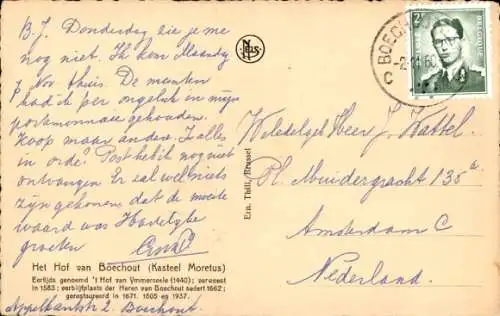 B.J. Donderdag zie je me
nog niet. Ik kom Maandag
7 Nov. thuis. De munten
had ik per ongeluk in mijn
portemonnaie gehouden.
Koop maar andere. Is alles
in orde? Post heb ik nog niet
ontvangen. Er zal wel niets
zijn gekomen dat de moeite
waard was. Hartelijke
groeten
Het Hof van Boechout (Kasteel Moretus)
Eertijds genoemd 't Hof van Ymmerseele (1440); verwoest
in 1583; verblijfplaats der Heren van Boechout sedert 1662;
gerestaureerd in 1671, 1805 en 1937.
Appelkantstr. 2. Boechout.
Nels
Ern. Thill, Brussel
BOECH
-2.11.60
2F
BELGIQUE
Weledelgeb Heer J. Wattel
Pl. Muidergracht 135a
Amsterdam C
Nederland.